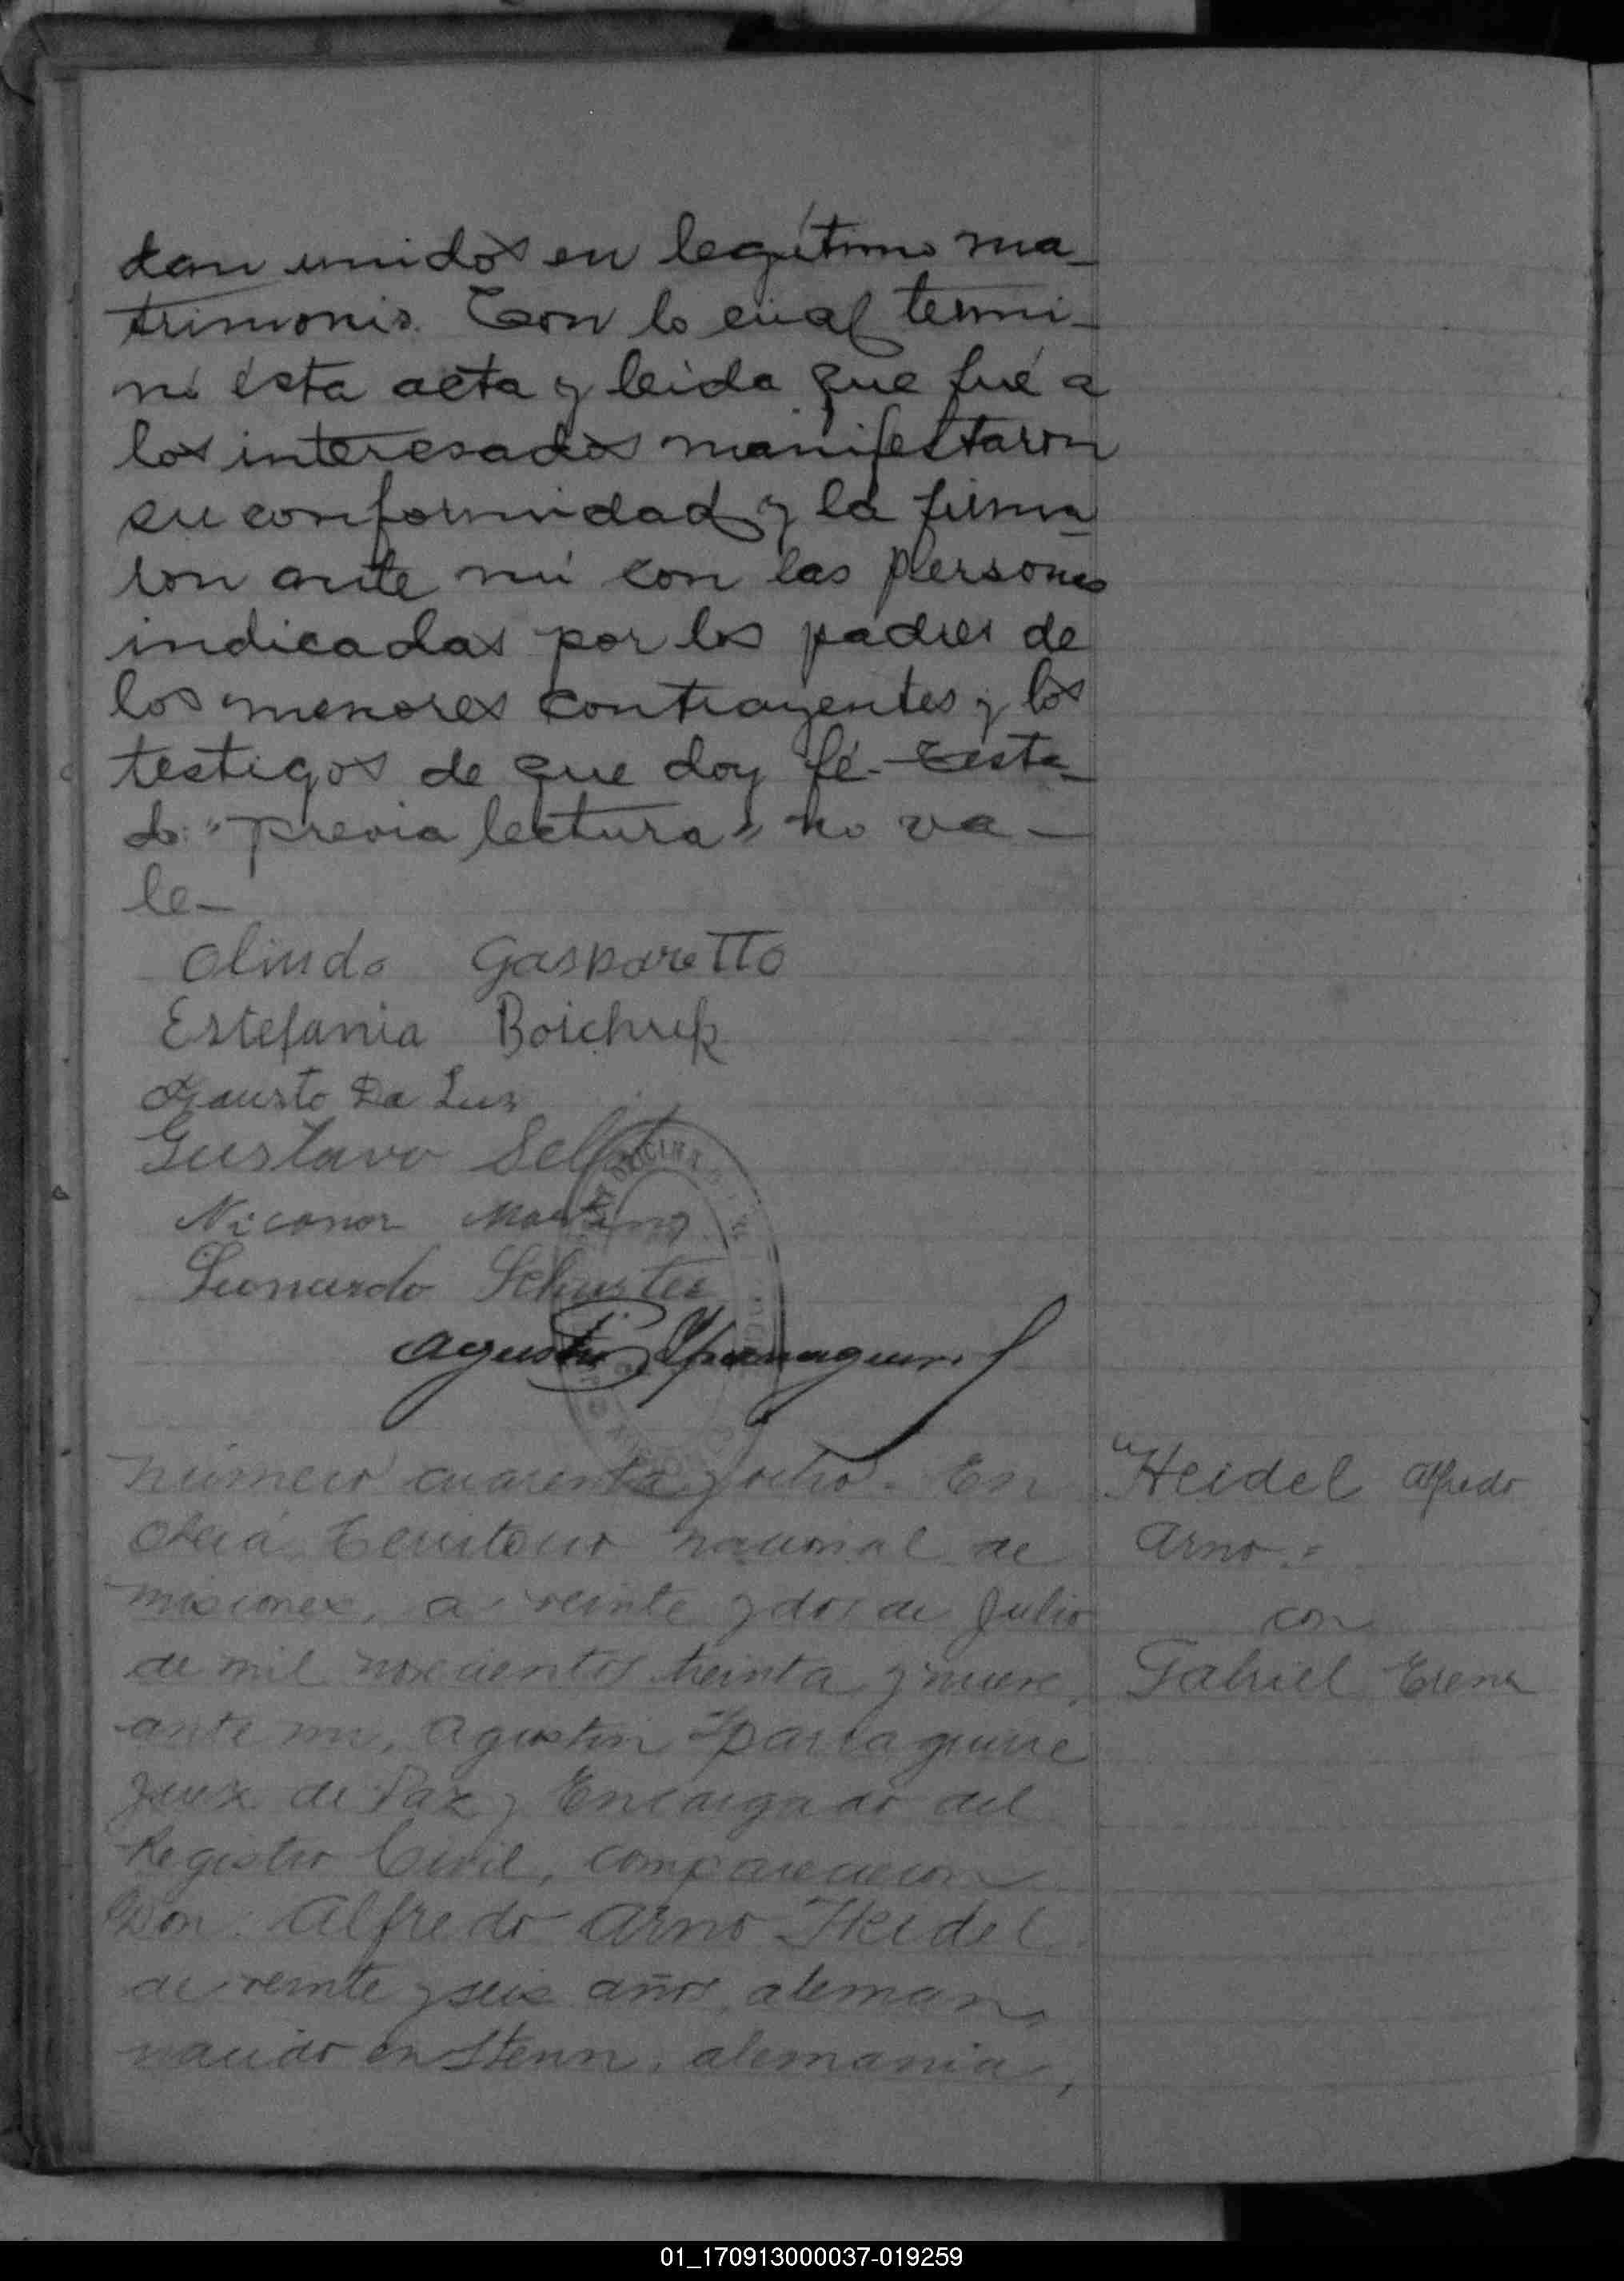 dan unidos en legítimo ma-
trimonio. Con lo cual termi-
nó ésta acta y leida que fué a
los interesados manifestaron
su conformidad y la firma
ron ante mí con las personas
indicadas por los padres de
los menores contrayentes y los
testigos de que doy fé.- Testa-
do: "previa lectura" no va-
le-
Olindo Gasparetto
Estefania Boichuk
Fausto Da Luz
Gustavo
Nicanor
Leonardo Schuster
Agustin Yparraguirre
OFICINA
Número cuarenta y ocho. En
Oberá Territorio nacional de
Misiones, a veinte y dos de Julio
de mil novecientos treinta y nueve,
ante mi, Agustin Yparraguirre
Juez de Paz y Encargado del
Registro Civil, comparecieron
Don Alfredo Arno Heidel
de veinte y seis años, aleman,
nacido en Stenn, alemania,
Heidel Alfredo
Arno.
con
Gabriel
01_170913000037-019259